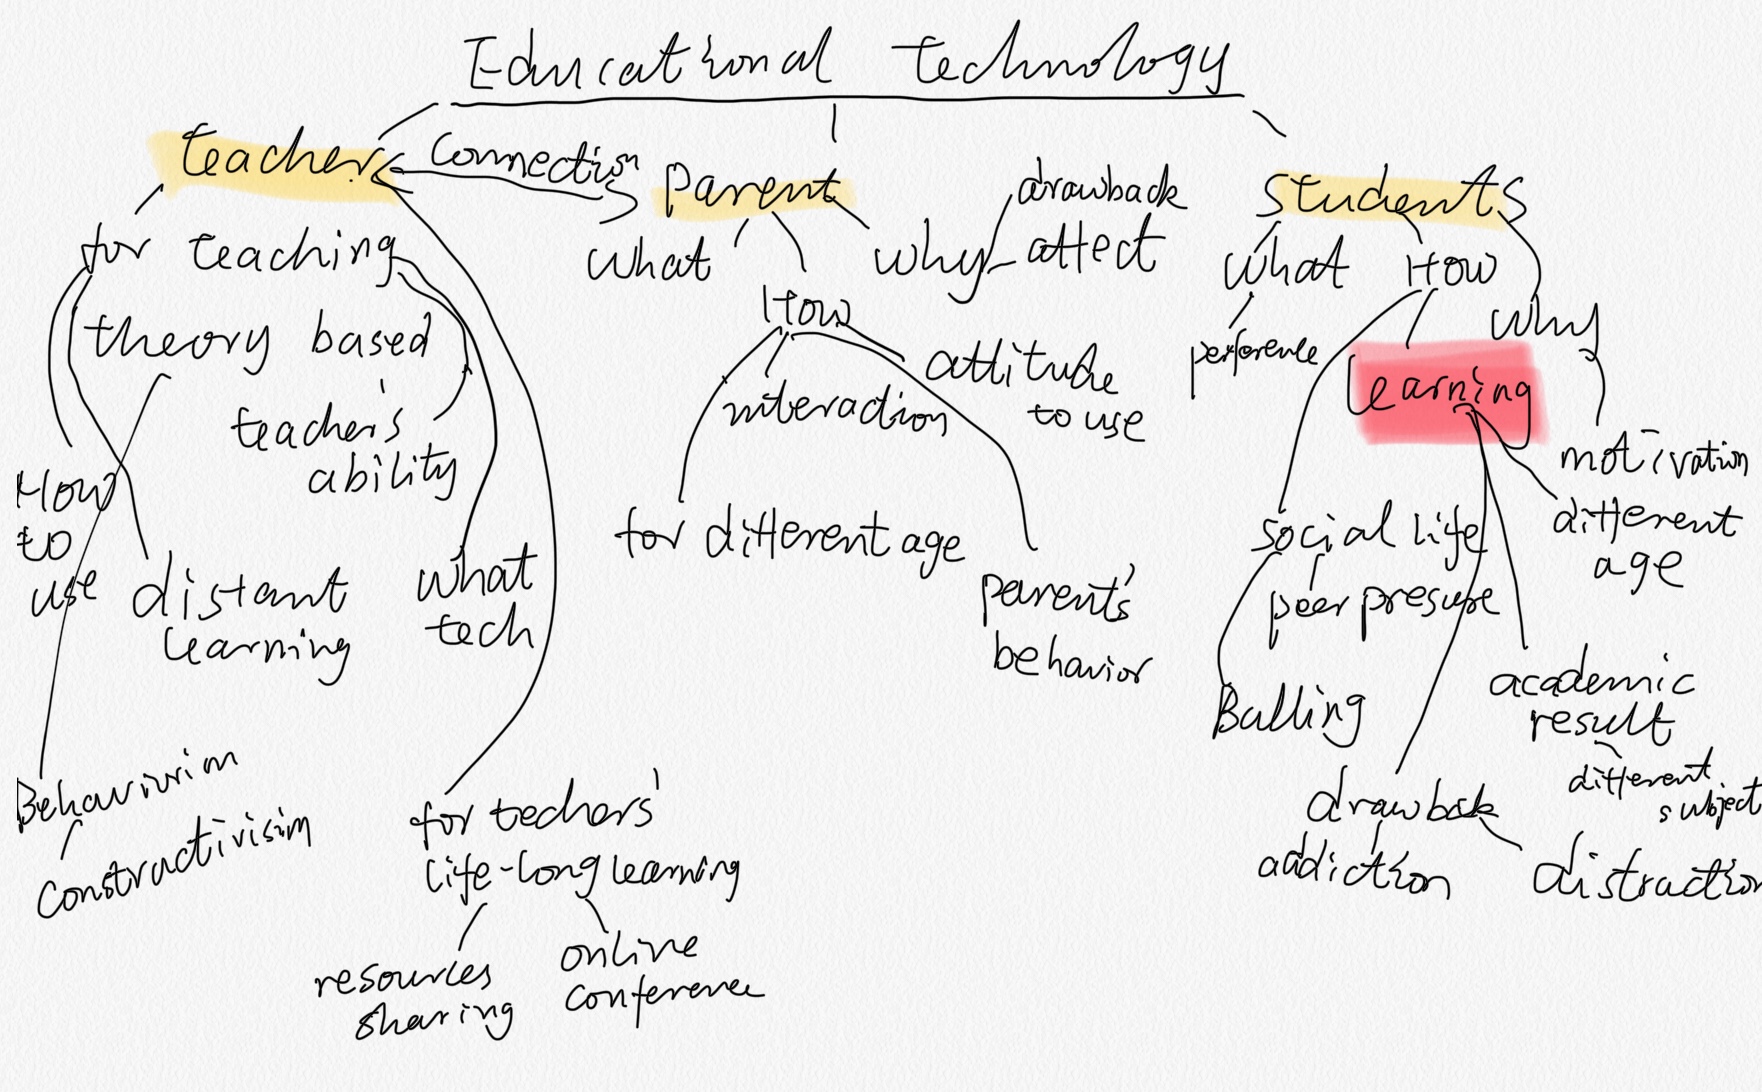 Educational technology
teacher
Connection
Parent
Students
for teaching
theory based
teacher's
ability
How
to
use
distant
learning
what
tech
Behaviurim
Constractivisim
for techers'
life-long learning
resources
sharing
online
conference
what
How
why
drawback
affect
interaction
attitude
to use
for different age
parents'
behavior
what
How
why
perference
learning
motivation
different
age
social life
peer presure
Bulling
academic
result
different
subject
drawback
addiction
distraction